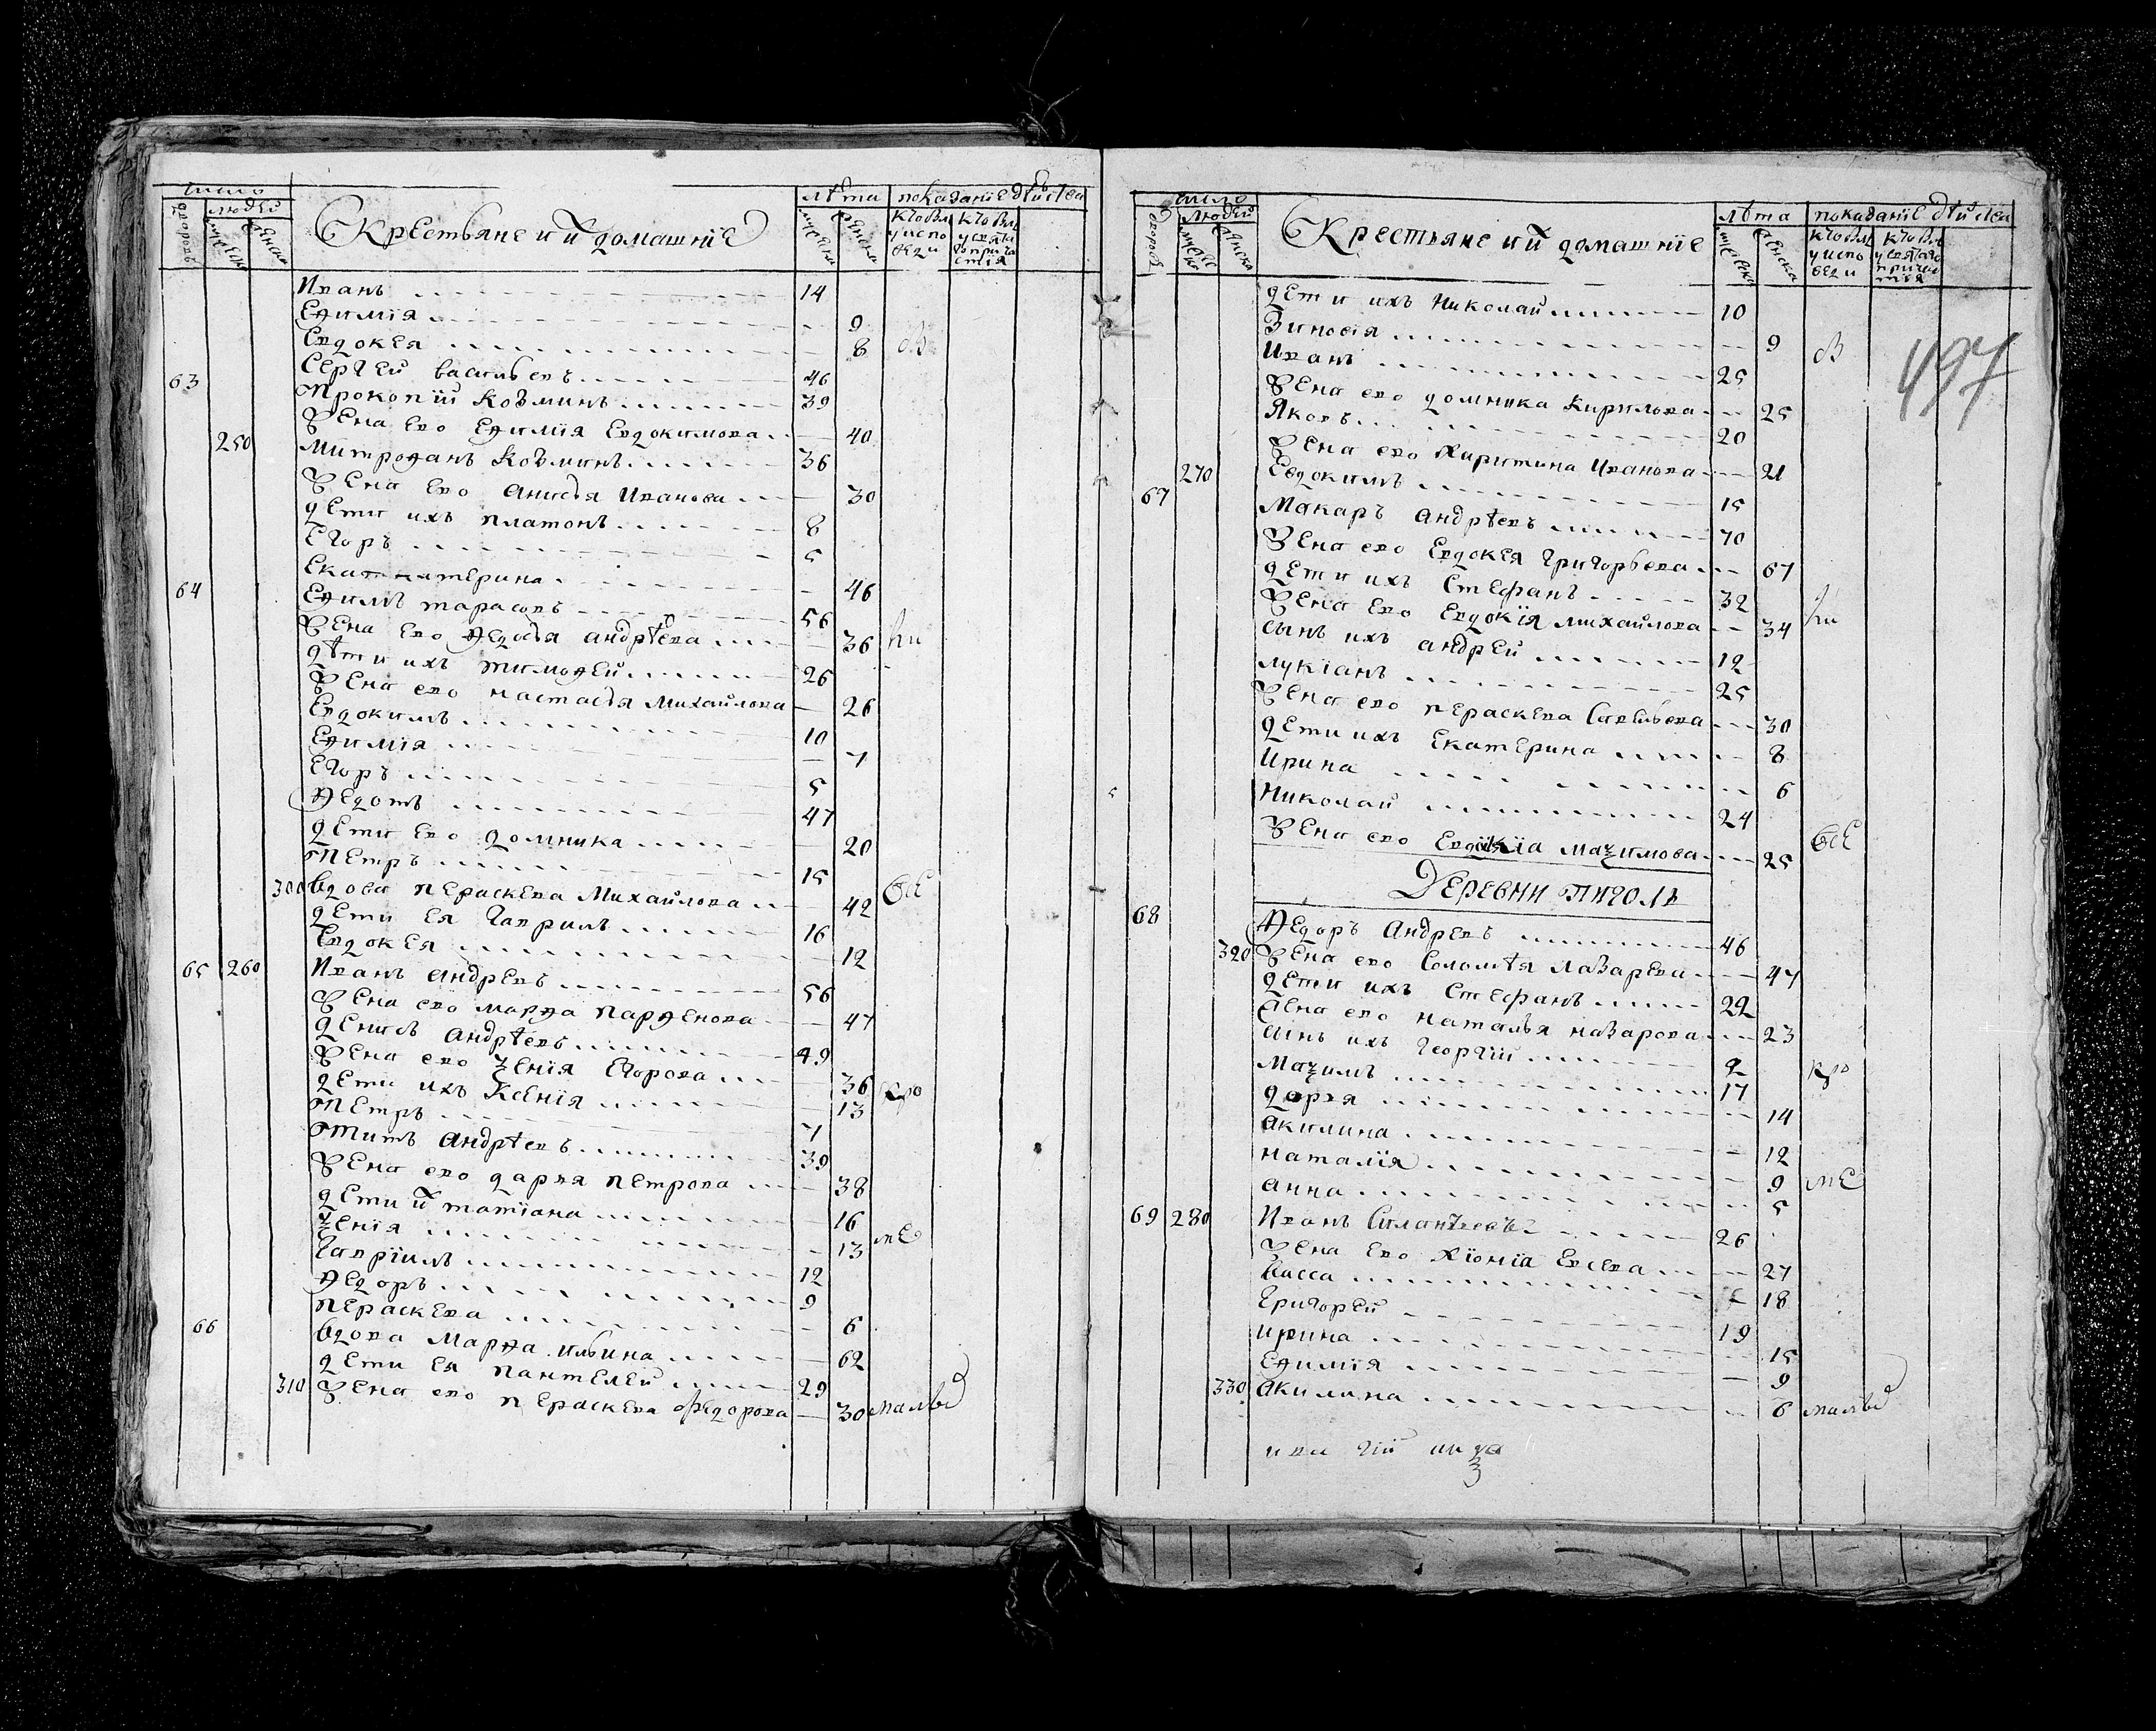 число лѣта показанiе дѣйства
дворовъ людей мужеска женска
Крестьяне и и҃ домашнїе
мужеска женска кто былъ у исповеди кто былъ у святаго причастiя
Иванъ 14
Еѳимїя 9
Евдокея 8
63 Сергей васильевъ 46
Прокопїй Козминъ 39
Жена Ево Еѳимїя Евдокимова 40
250 Митроѳанъ Козминъ 36
Жена Ево Анисья Иванова 30
дети ихъ платонъ 8
Егоръ 5
Екатерина 46
64 Еѳимъ тарасовъ 56
Жена Ево Ѳедосья андрѣева 36
дѣти ихъ тимоѳей 26
Жена ево настасья Михайлова 26
Евдокимъ 10
Еѳимїя 7
Егоръ 5
Ѳедотъ 47
дети Ево домника 20
Петръ 15
300 вдова пераскева Михайлова 42
дети Ея Гаврилъ 16
Евдокея 12
65 260 Иванъ андревъ 56
Жена ево марѳа парѳенова 47
денисъ андрѣевъ 49
Жена ево ѯенїя Егорова 36
дети ихъ Ксенїя 13
Петръ 7
Титъ андрѣевъ 39
Жена ево дарья петрова 38
дети и҃ татїана 16
ѯенїя 13
Гаврїилъ 12
Ѳедоръ 9
пераскева 6
66 вдова Марѳа ильина 62
дети Ея пантелей 29
310 Жена ево пераскева федорова 30
число лѣта показанїе дѣйства
дворовъ людей мужеска женска
Крестьяне и и҃ домашнїе
мужеска женска кто былъ у исповеди кто былъ у святаго причастiя
497
дети ихъ Николай 10
Зиновїя 9
Иванъ 25
Жена ево домника Кирилова 25
Яковъ 20
Жена ево Харитина Иванова 21
270 Евдокимъ 15
67 Макаръ андрѣевъ 70
Жена ево Евдокея григорьева 67
дети ихъ Стефанъ 32
Жена Ево Евдокїя михайлова 34
сынъ ихъ андрей 12
лукїанъ 25
Жена ево пераскева Савельева 30
дети ихъ Екатерина 8
Ирина 6
Николай 24
Жена ево Евдокїа маѯимова 25
Деревни Пиголь
68 Ѳедоръ Андревъ 46
320 Жена ево Соломѣя лазарева 47
дети ихъ Стефанъ 22
Жена ево наталья назарова 23
сынъ ихъ георгїй 2
маѯимъ 17
дарья 14
акилина 12
наталїя 9
анна 5
69 280 Иванъ Силантьевъ 26
Жена Ево Хїонїа Евсева 27
васса 18
григорей 19
ирина 15
Еѳимїя 9
330 акилина 6